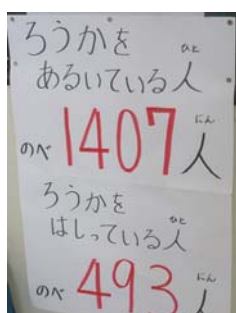 ろうかを
あるいている人
ひと
のべ1407人
にん
ろうかを
はしっている人
ひと
のべ493人
にん